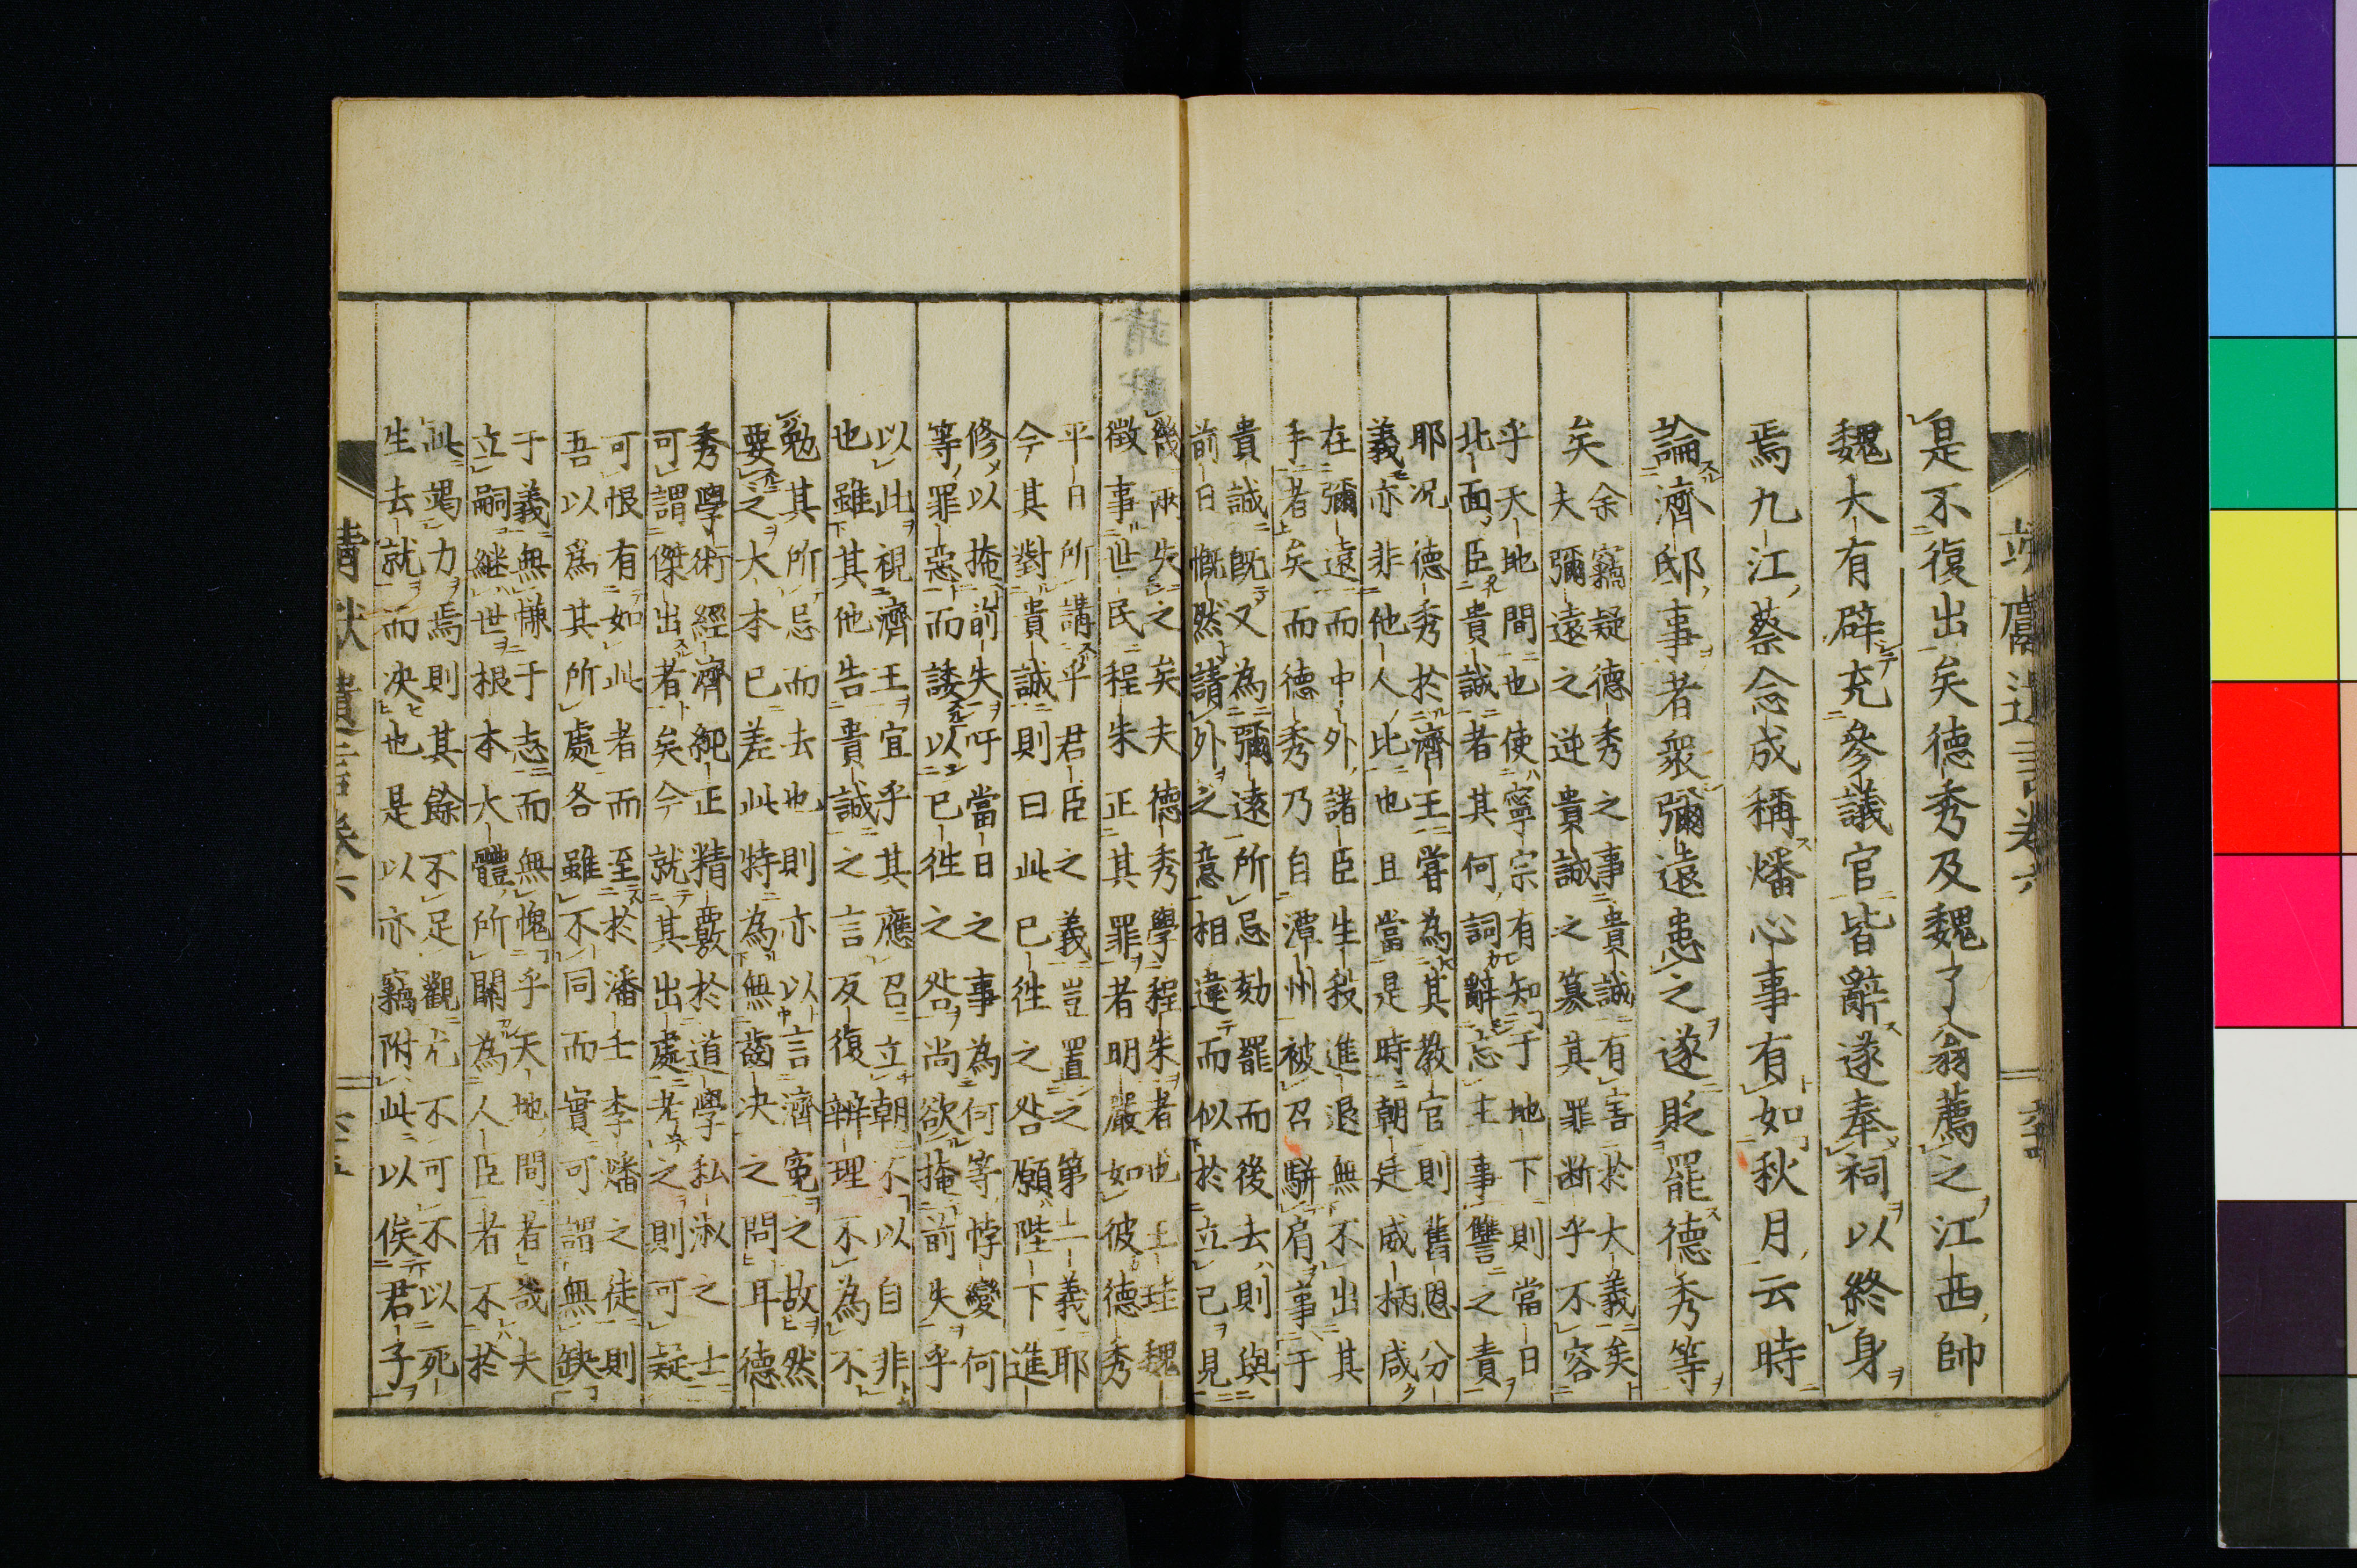 是不復出矣德秀及魏了翁薦之江西帥
魏大有辟充參議官皆辭遂奉祠以終身
焉九江蔡念成稱燔心事有如秋月云時
論濟邸事者衆彌遠患之遂貶罷德秀等
矣
余竊疑德秀之事貴誠有害於大義矣
夫彌遠之逆貴誠之簒其罪斷乎不容
乎天地間也使寧宗有知于地下則當日
北面臣貴誠者其何詞辭忘主事讐之責
耶况德秀於濟王嘗為其教官則舊恩分
義亦非他人比也且當是時朝廷威柄咸
在彌遠而中外諸臣生殺進退無不出其
手者矣而德秀乃自潭州被召騈肩事于
貴誠既又為彌遠所忌劾罷而後去則與
前日慨然請外之意相違而似於立己見
幾兩失之矣夫德秀學程朱者也王珪魏
徵事世民程朱正其罪者明嚴如彼德秀
平日所講平君臣之義豈置之第二義耶
今其對貴誠則曰此已徃之咎願陛下進
修以掩前失吁當日之事為何等悖變何
等罪惡而諉以已徃之咎尚欲掩前失乎
以此視濟王宜乎其應召立朝不以自非
也雖其他告貴誠之言反復辨理不為不
勉其所忌而去也則亦以言濟寃之故然
要之大本已差此特為無齒决之問耳德
秀學術經濟純正精覈於道學私淑之士
可謂傑出者矣今就其出處考之則可疑
可恨有如此者而至於潘壬李燔之徒則
吾以為其所處各雖不同而實可謂無缺
于義無慊于志而無愧乎天地間者哉夫
立嗣継世根本大體所關為人臣者不於
此竭力焉則其餘不足觀尤不可不以死
生去就而决也是以亦竊附此以俟君子
靖獻遺言卷六